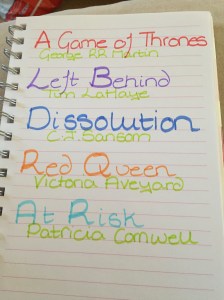 A Game of Thrones
George RR Martin
Left Behind
Tim LaHaye
Dissolution
C.J. Sansom
Red Queen
Victoria Aveyard
At Risk
Patricia Cornwell